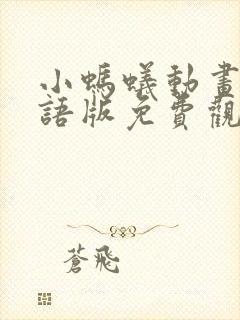 小螞蟻動畫
語版免費觀
蒼飛